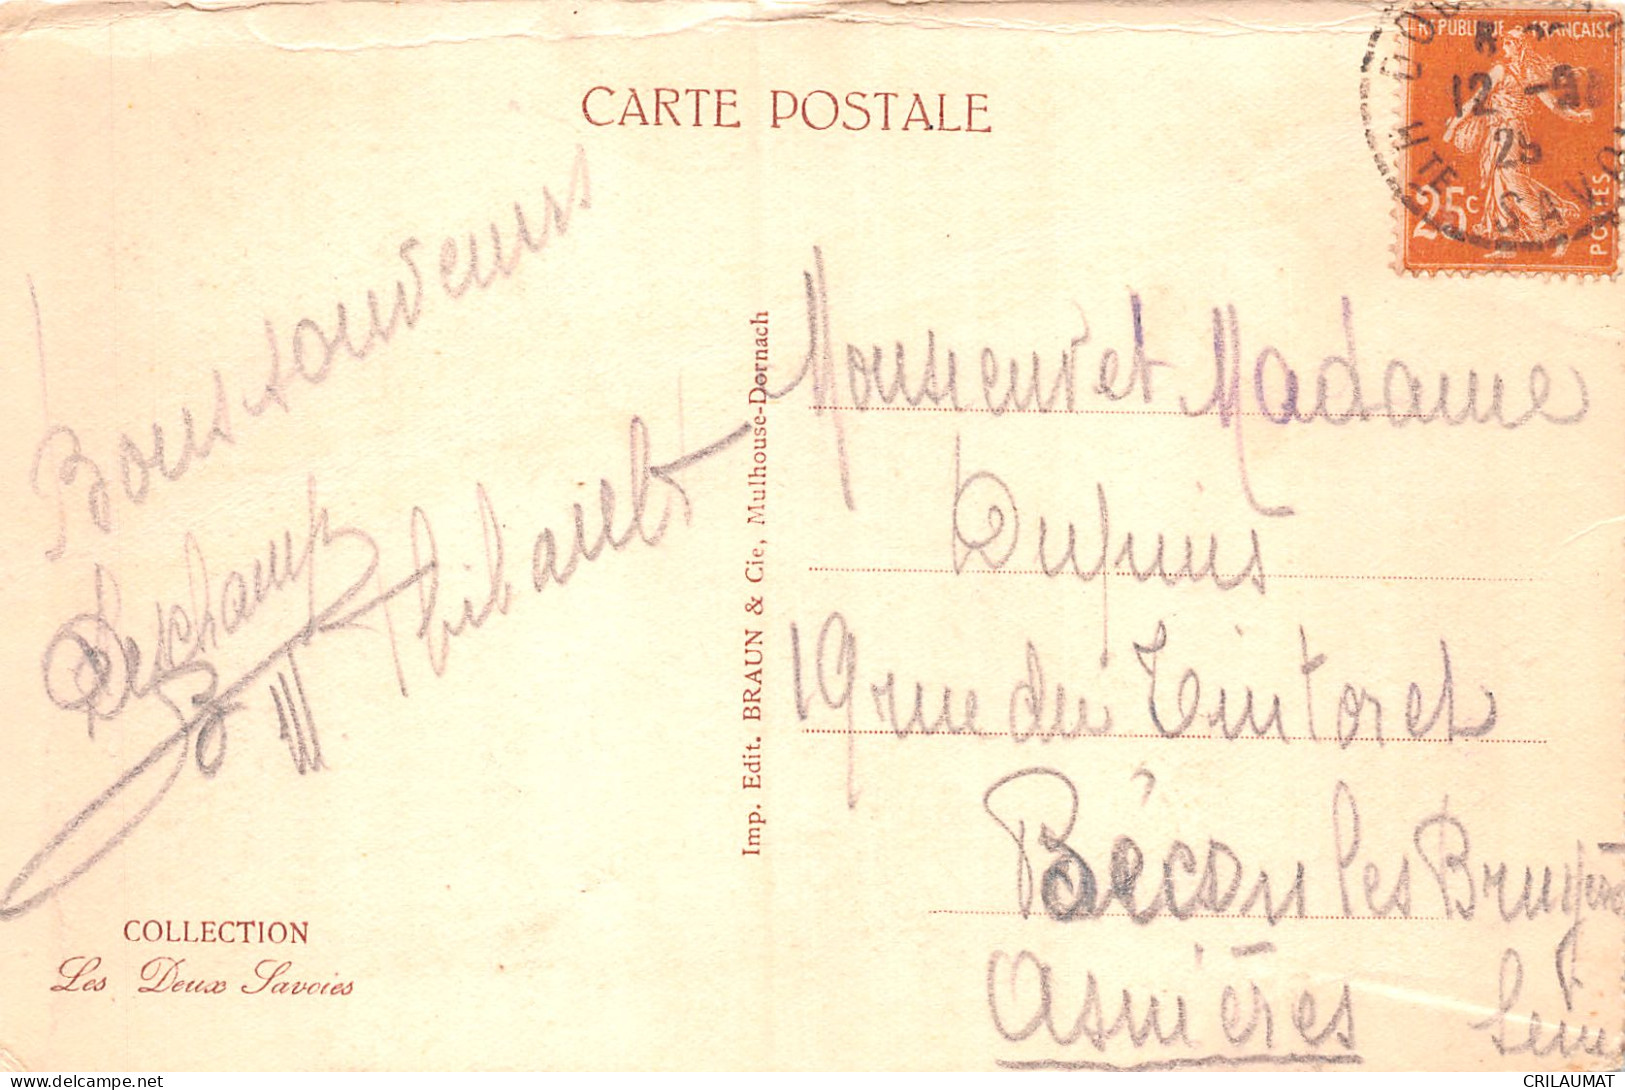 CARTE POSTALE
REPUBLIQUE FRANÇAISE
12 -9
25
HTE SAVOI
25c
POSTES
Bons souvenirs
Deschamps Thibault
Imp. Edit. BRAUN & Cie, Mulhouse-Dornach
Monsieur et Madame
Dupuis
19 rue du Tintoret
Bécon les Bruyères
Asnières
Seine
COLLECTION
Les Deux Savoies
CRILAUMAT